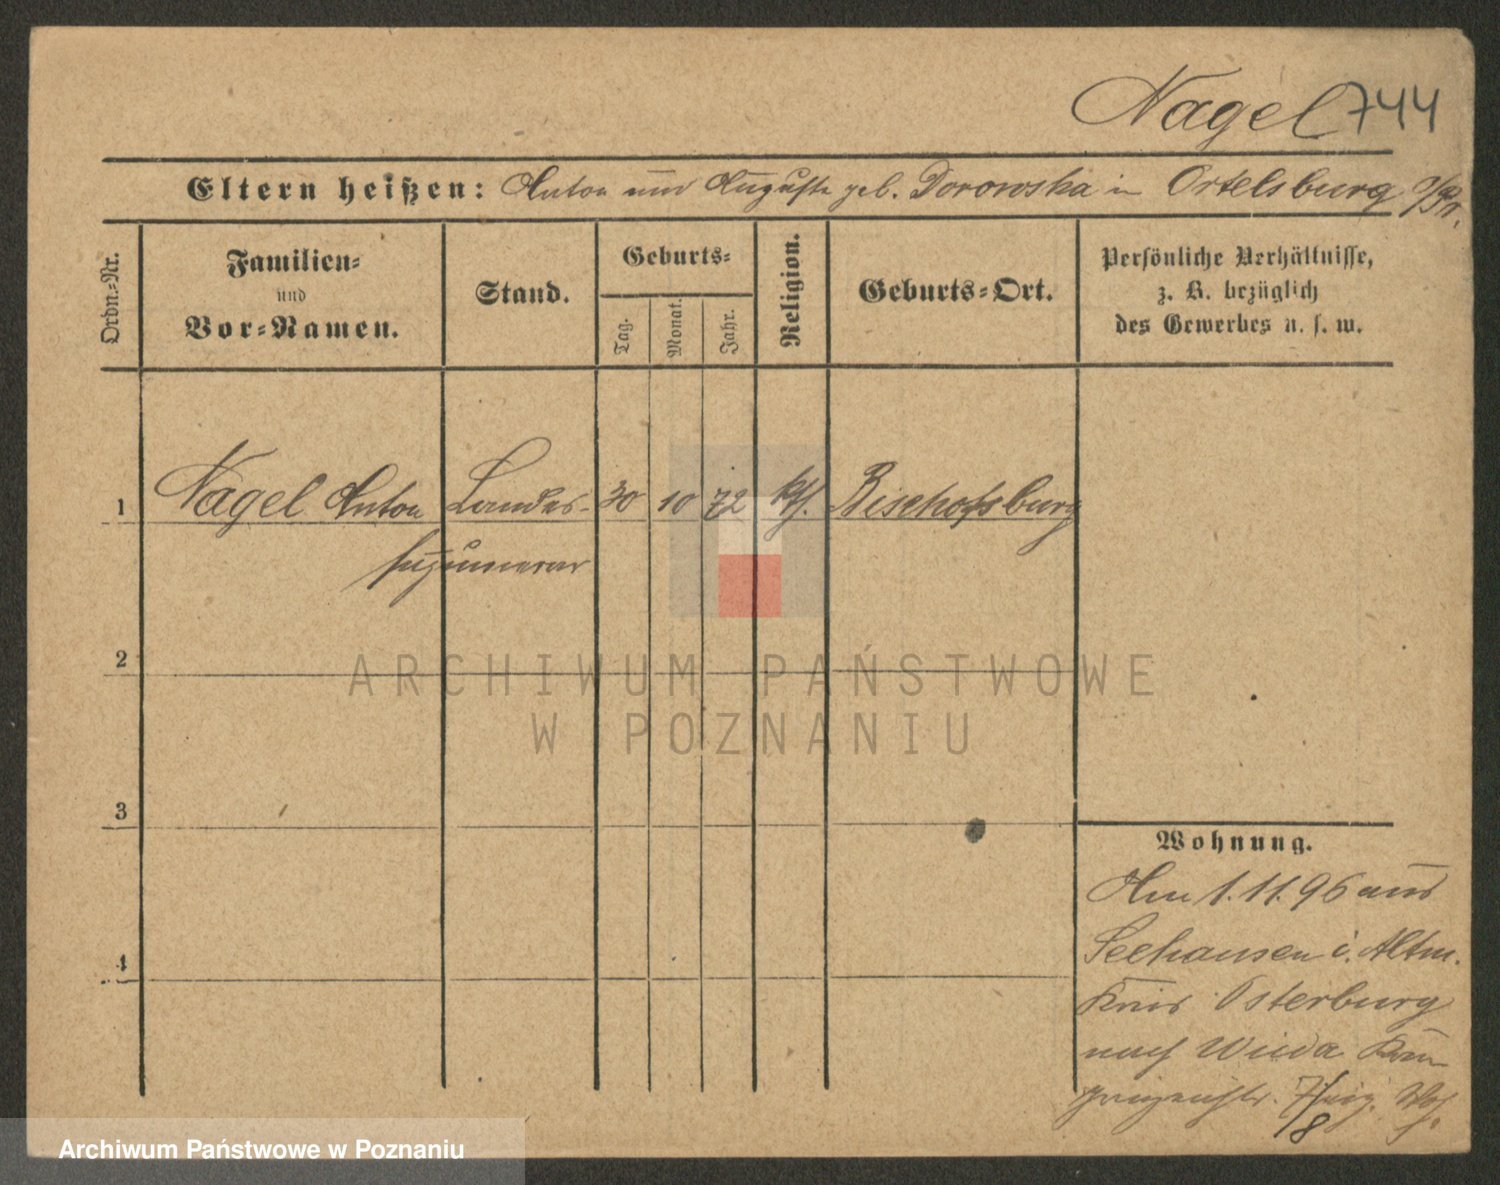 Nagel 744
Eltern heißen: Anton und Auguste geb. Dorowska in Ortelsburg O/Pr.
Ordn.-Nr.
Familien-
und
Vor-Namen.
Stand.
Geburts-
Tag.
Monat.
Jahr.
Religion.
Geburts-Ort.
Persönliche Verhältnisse,
z. B. bezüglich
des Gewerbes u. s. w.
1 Nagel Anton Landes- 30 10 72 kth. Bischofsburg
supernumerar
2
3
4
Wohnung.
Am 1.11.96 aus
Seehausen i. Altm.
Kreis Osterburg
nach Wilda Kron
prinzenstr. 7/8
ARCHIWUM PAŃSTWOWE
W POZNANIU
Archiwum Państwowe w Poznaniu